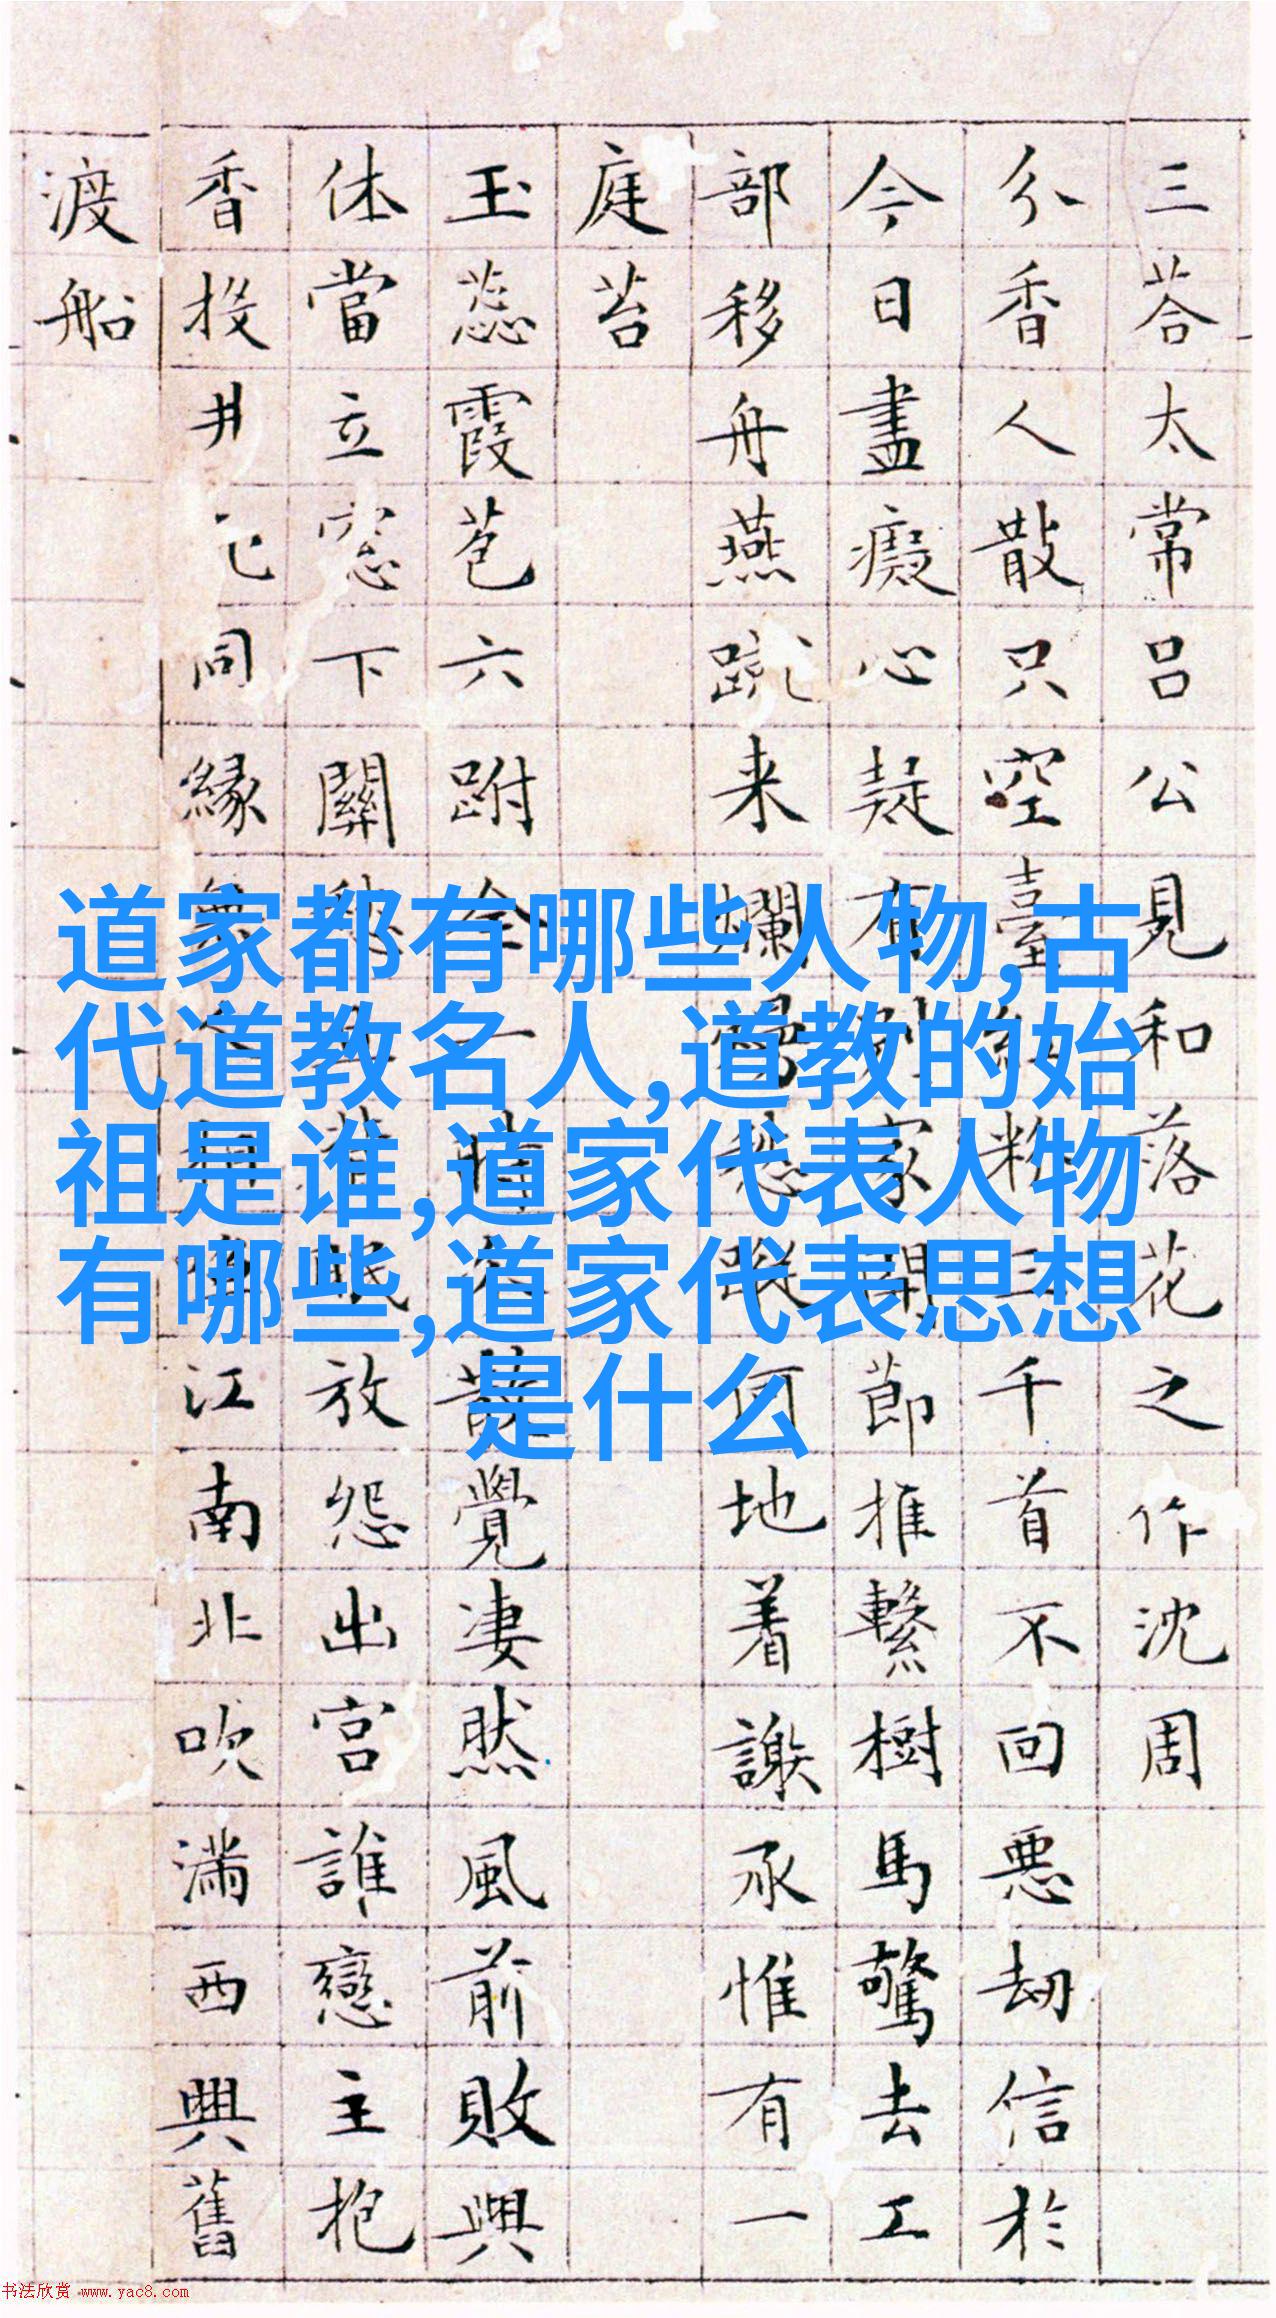 三荅太常吕公見和落花之作沈周
分香人散只空臺紅粉三千首不回悪劫信於
今日盡癡心疑有別家開節推繫樹馬驚去工
部移舟燕蹴来爛愁蹤何地着謝承惟有一
庭苔
玉蕊霞苞六跗全一時散覺凄然風前敗興
休當立窓下關愁眠放怨出宫誰戀主抱
香投井同縁無江南北吹满西興舊
渡船
道家都有哪些人物,古
代道教名人,道教的始
祖是谁,道家代表人物
有哪些,道家代表思想
是什么
书法欣赏 www.yac8.com